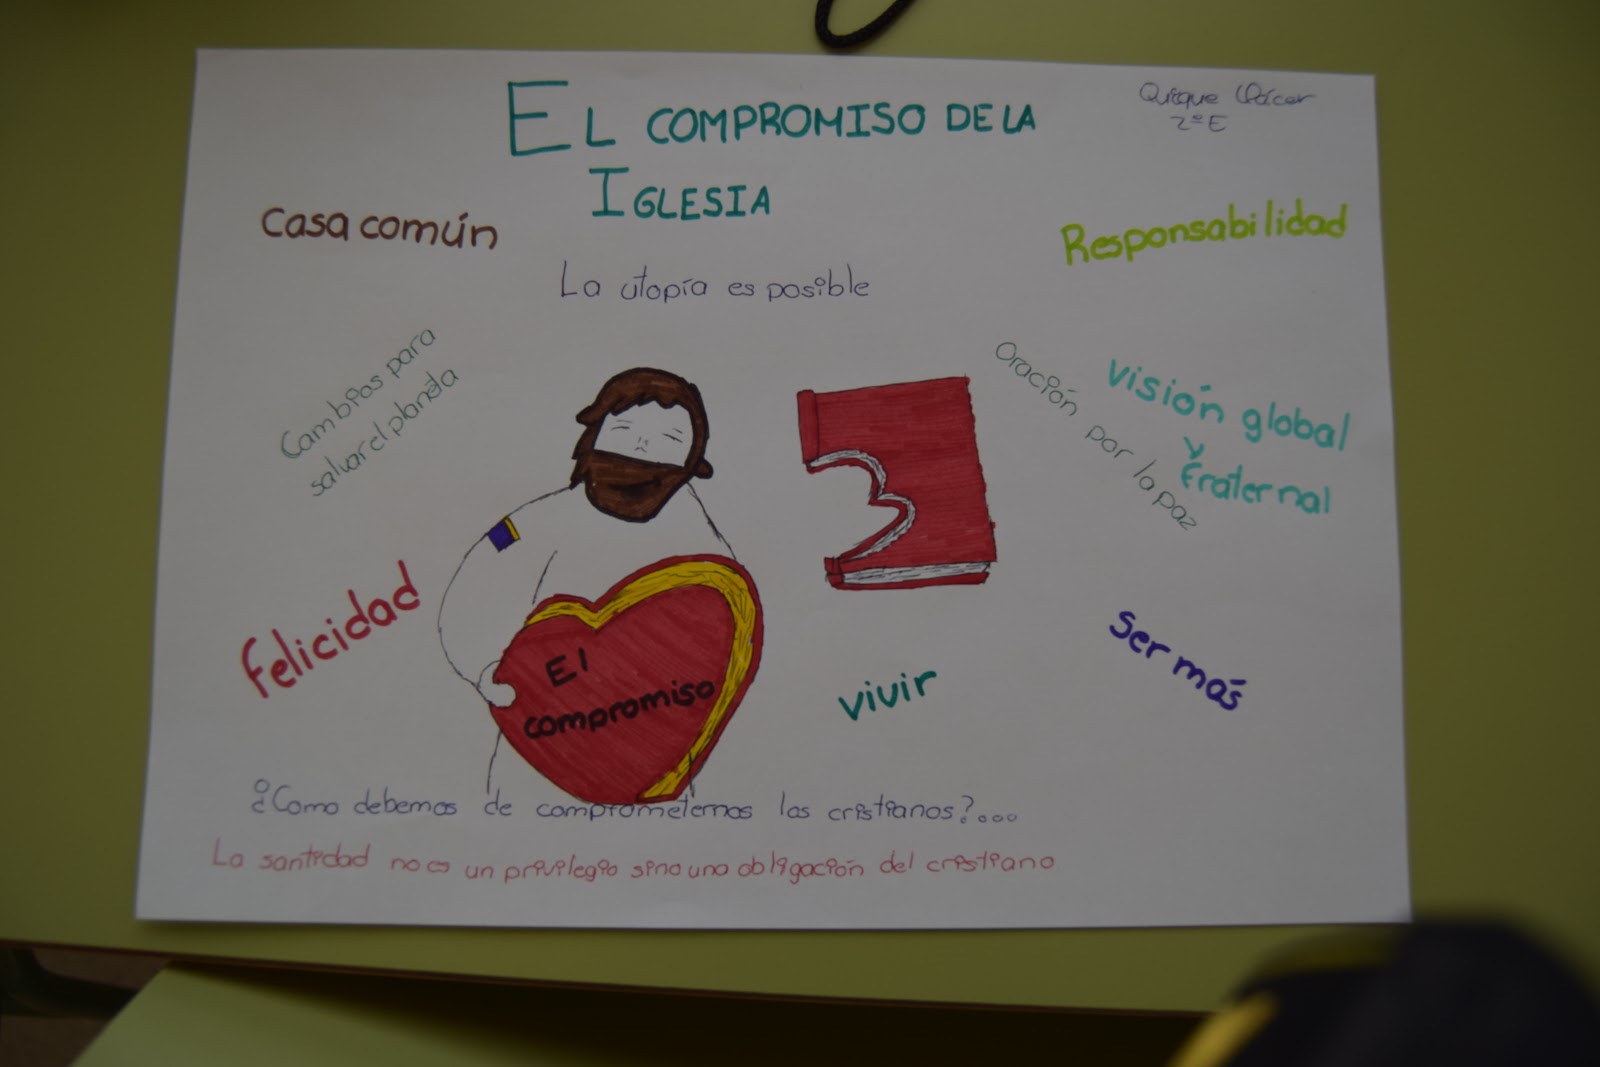 EL COMPROMISO DE LA
IGLESIA
Quique Llácer
2ºE
Casa común
Responsabilidad
La utopía es posible
Cambios para
salvar el planeta
Oración por la paz
Visión global
Fraternal
Felicidad
El
compromiso
vivir
Ser más
¿Como debemos de comprometernos los cristianos?....
La santidad no es un privilegio sino una obligación del cristiano